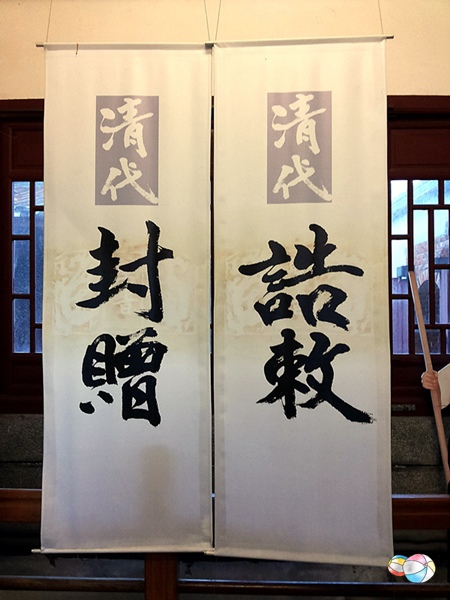 清代
誥敕
清代
封贈